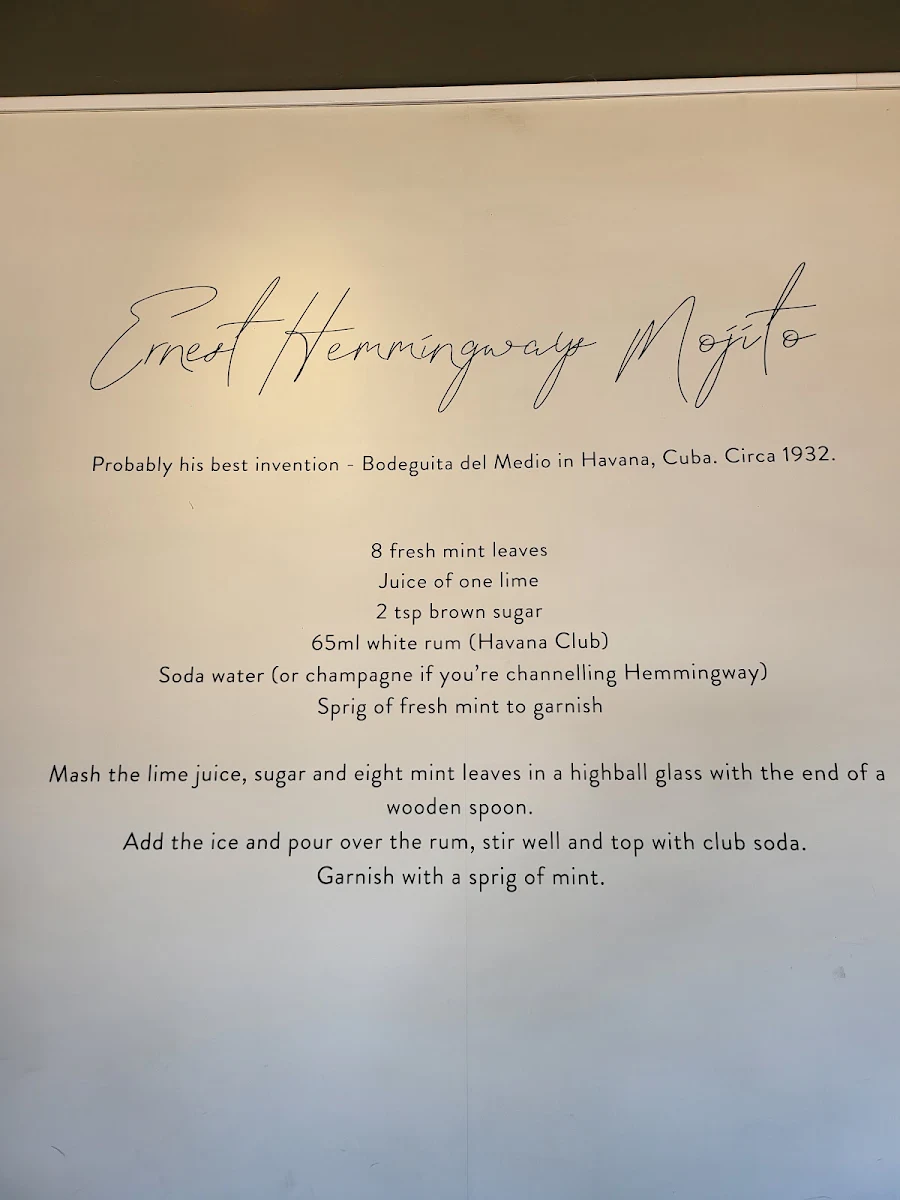 Ernest Hemmingways Mojito
Probably his best invention - Bodeguita del Medio in Havana, Cuba. Circa 1932.
8 fresh mint leaves
Juice of one lime
2 tsp brown sugar
65ml white rum (Havana Club)
Soda water (or champagne if you're channelling Hemmingway)
Sprig of fresh mint to garnish
Mash the lime juice, sugar and eight mint leaves in a highball glass with the end of a
wooden spoon.
Add the ice and pour over the rum, stir well and top with club soda.
Garnish with a sprig of mint.